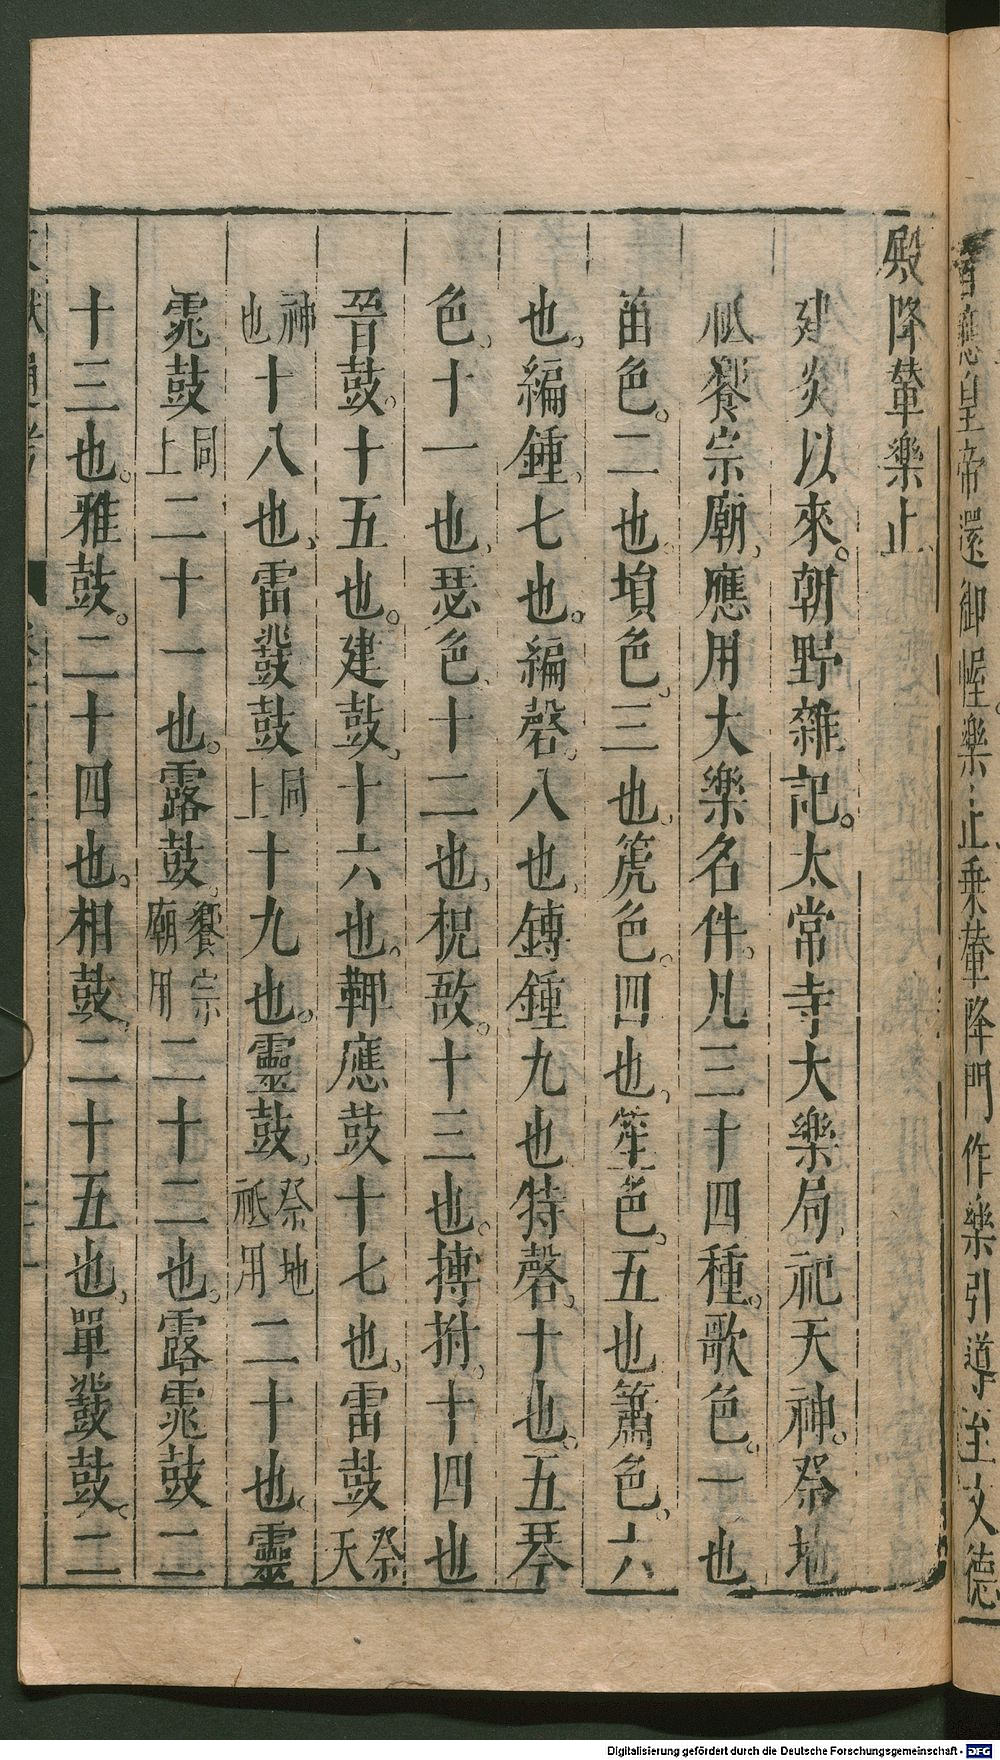 首應皇帝還御幄樂止乗輦降門作樂引導至文德
殿降輦樂止
建炎以來。朝野雜記。太常寺大樂局。祀天神。祭地
祇饗宗廟、應用大樂名件。凡三十四種。歌色。一也
笛色。二也塤色。三也、篪色。四也、笙色。五也簫色。六
也、編鍾。七也。編磬。八也、鏄鍾九也特磬、十也。五琴
色、十一也、瑟色、十二也、柷敔。十三也。搏拊、十四也
晉鼓。十五也。建鼓、十六也。鞞應鼓十七也、雷鼓祭天
神也十八也、雷鼗鼓同上十九也。靈鼓、祭地祇用二十也。靈
鼗鼓同上二十一也。露鼓、饗宗廟用二十二也。露鼗鼓二
十三也。雅鼓。二十四也。相鼓、二十五也、單鼗鼓。二
Digitalisierung gefördert durch die Deutsche Forschungsgemeinschaft - DFG